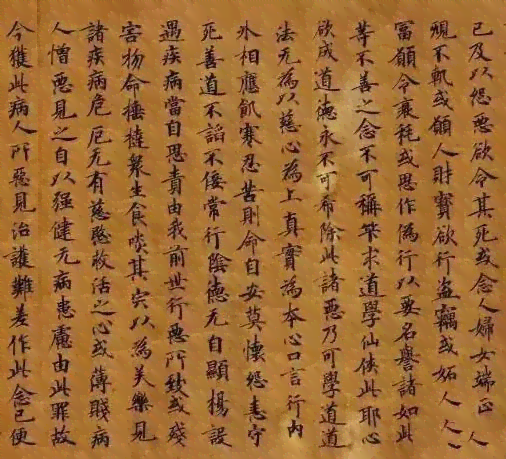 已及以怨惡欲令其死或念人婦女端正 人
現不軌或願人財寳欲行盗竊或妬人人
冨願令衰秏或思作偽行以要名譽諸如此
等不善之念不可稱筭求道學仙俠此耶心
欲成道德永不可希除此諸惡乃可學道道
法无為以慈心為上真實為本心口言行內
外相應飢寒忍苦則命自安莫懷怨恚守
死善道不謟不佞常行陰德无自顯揚設
遇疾病當自思責由我前世行惡所致或殘
害物命捶撻衆生食啖其宍以為美樂見
諸疾病危厄无有慈愍救活之心或薄賤病
人憎惡見之自以强健无病患慮由此罪故
今獲此病人所惡見治護難差作此念已便